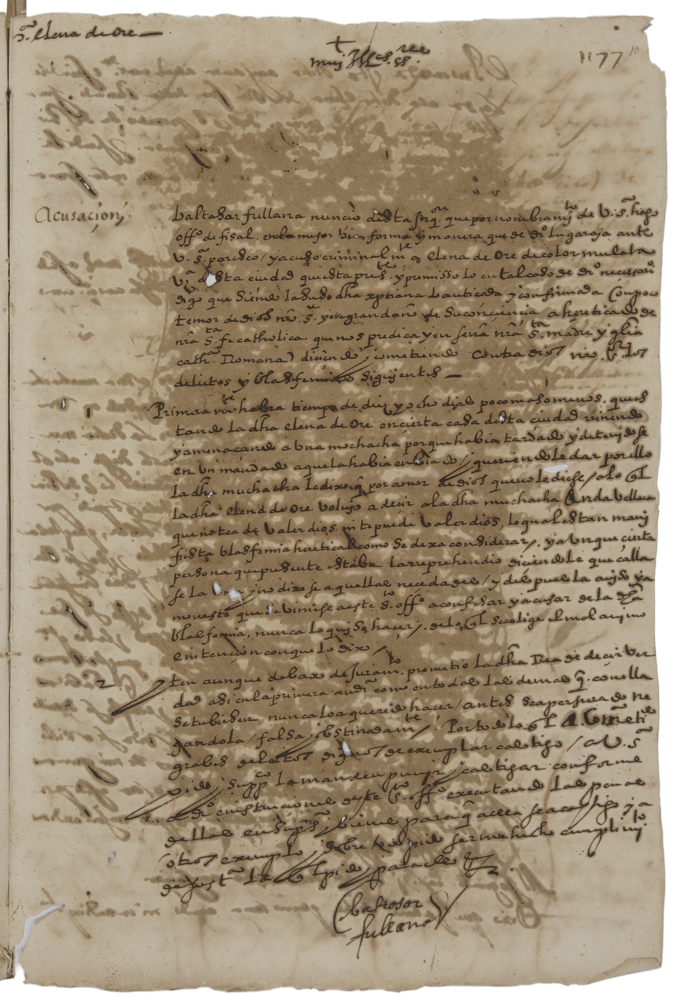 S.ª elena de Ore
+
muy Ill.es ss.res
1177
Acusacion
baltasar fullana nuncio desta Inq.on que por nombramy.to de V. S.ª hago
off.o de fiscal. en la mejor via, forma y manera que de dr.o lugar aja ante
V. S.ª parezco / y acuso criminalm.te a elena de Ore de color mulata
V.ª desta ciudad questa pres.te y premisso lo en tal caso de dr.o necessari
digo que siendo la suso dha xptiana bautizada y confirmada Con poco
temor de dios nro S.r y en gran daño de su conciencia a hereticado de
nra S.ta fe catholica que nos predica y enseña nra S.ta madre yglia
cath.ca Romana) diciendo / cometiendo Contra dios nro S.r los
delictos y blasfemias siguientes
Primeramente habra tiempo de diez y ocho dias poco mas o menos. que es
tando la dha elena de Ore en cierta casa desta ciudad riniendo
y amenaçando a una mochacha porque habia tardado y detenidose
en un mandado a que la habia enbiado / y queriendole dar por ello
la dha muchacha le dixo q por amor de dios que no le diese / a lo ql
la dha elena de Ore volvio a decir a la dha muchacha Anda vellaca
que no te a de valer dios ni te puede valer dios, lo qual es tan mani
fiesta blasfemia heretical como se dexa considerar /. y aunque cierta
persona que presente estaba la reprehendio diciendole que calla
se la boca / y no dixese aquellas necedades / y despues la aviso y a
monesto que se viniese a este S.to off.o a confesar y acusar de la dha
blasfemia, nunca lo quiso hacer /. de lo ql se colige el mal animo
e intencion con que lo dixo /
2 Iten aunque debaxo de juram.to prometio la dha Rea de decir ver
dad asi en la primera aud.a como en todas las demas q con ella
se tubiesen, nunca lo a querido hacer / antes se a perjurado ne
gandola / falsa / obstinadam.te / Por todo lo ql A cometido
grabes delictos dignos de exemplar castigo / a V. S.ª
pido / supp.co la manden punir / castigar conforme
a dr.o e instruciones deste S.to off.o executando las penas
dellas en su persona / bienes para q a ella sea castigo y a
otros exemplo / sobre lo q pido serme hecho cumplimi.to
de just.a la ql pido / para ello
baltasar
fullana